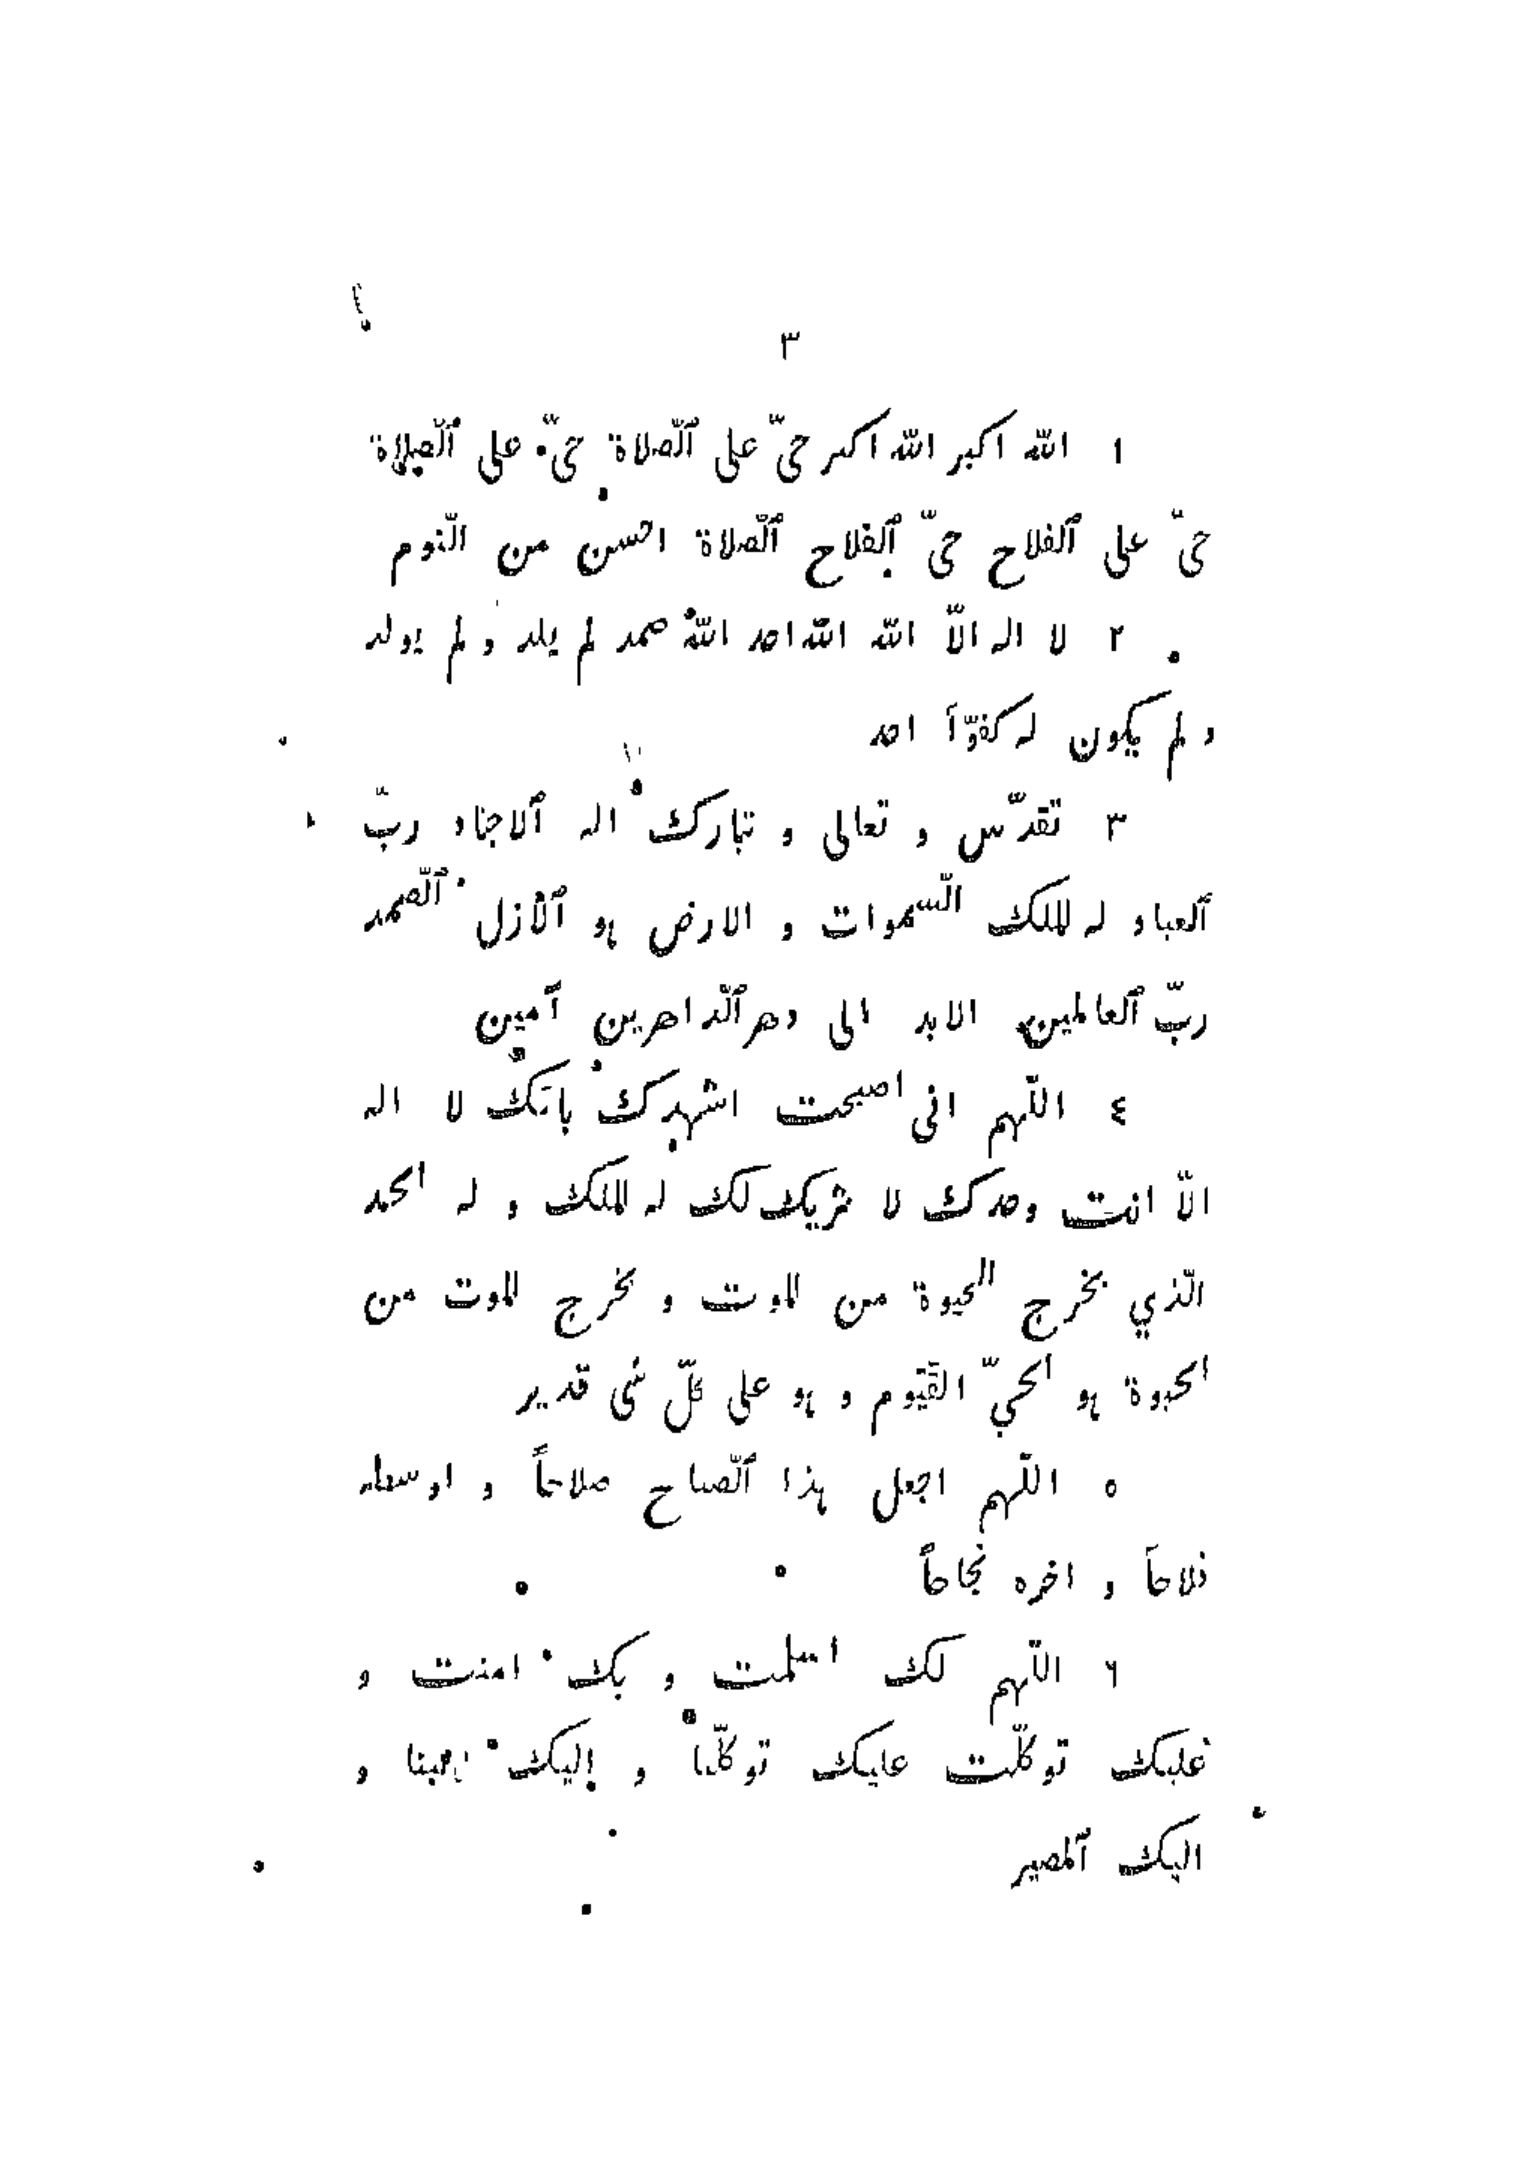 ٣
١ الله اكبر الله اكبر حىّ على ٱلّصلاة حىّ على ٱلّصلاة
حىّ على ٱلفلاح حىّ ٱلفلاح ٱلّصلاة احسن من النّوم
٢ لا اله الاّ الله الله احد الله صمد لم يلد و لم يولد
و لم يكون له كفوّاً احد
٣ تقدّس و تعالى و تبارك اله ٱلاجناد ربّ
ٱلعباد له الملك السّموات و الارض هو ٱلأزل ٱلّصمد
ربّ ٱلعالمين الابد الى دهر ٱلّداهرين آمين
٤ اللّهم انى اصبحت اشهدك بانك لا اله
الاّ انت وحدك لا شريك لك له الملك و له الحمد
الّذي يخرج الحيوة من الموت و يخرج الموت من
الحيوة هو الحيّ القّيوم و هو على كلّ شى قدير
٥ اللّهم اجعل هذا ٱلّصباح صلاحاً و اوسطه
فلاحاً و اخره نجاحاً
٦ اللّهم لك اسلمت و بك امنت و
عليك توكلّت عليك توكلّنا و إليك و
اليك ٱلمصير